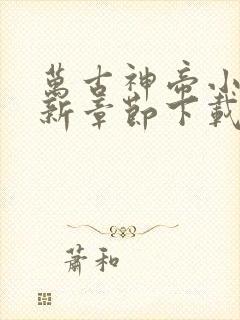 萬古神帝小
新章節下載
蕭和